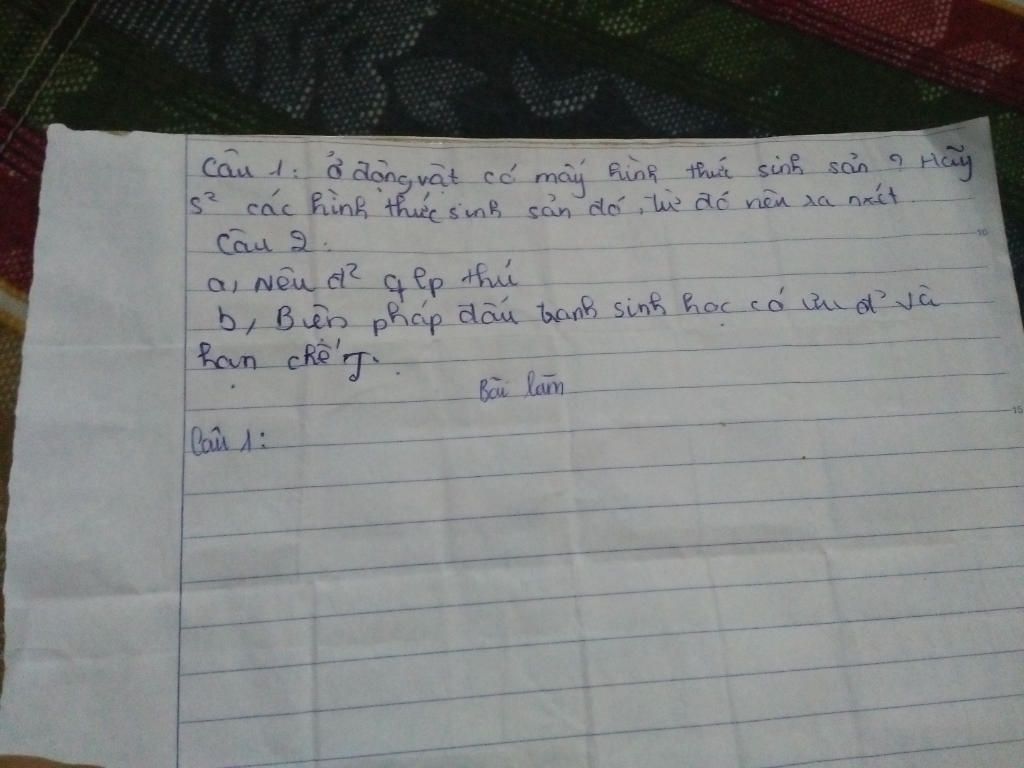 Câu 1: Ở động vật có mấy hình thức sinh sản ? Hãy
s² các hình thức sinh sản đó, từ đó nêu ra nxét.
Câu 2:
a, Nêu đ² của lớp thú
b, Biện pháp đấu tranh sinh học có ưu đ² và
hạn chế gì.
Bài làm
Câu 1:
10
15